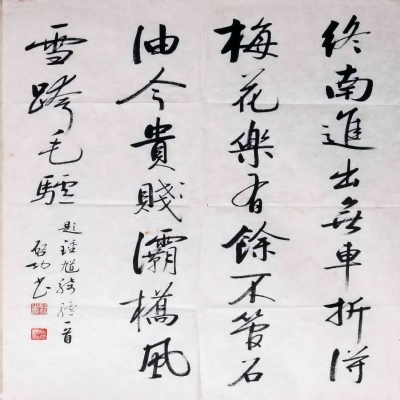 終南進出無車折得
梅花樂有餘不管石
油今貴賤灞橋風
雪跨毛驢
題鍾馗騎驢一首
啓功書